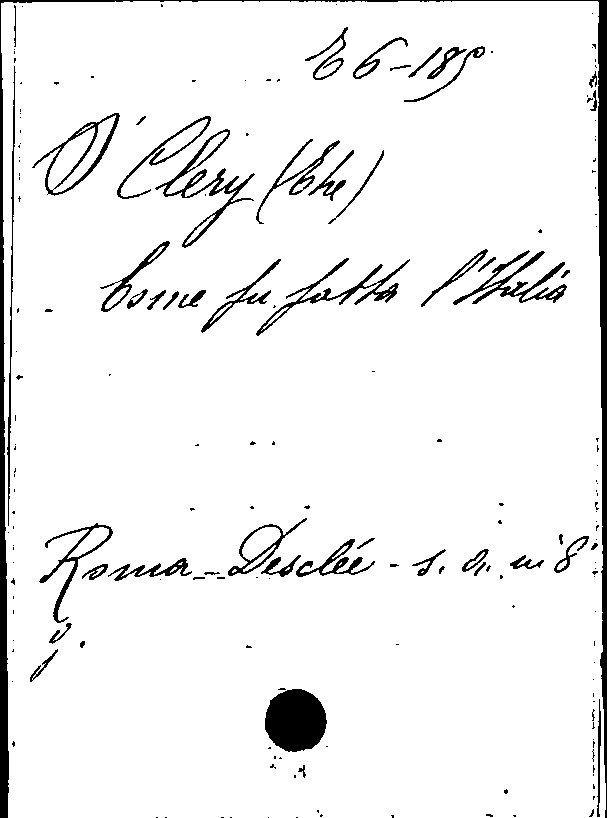 E 6-189
O' Clery (The)
Come fu fatta l'Italia
Roma - Desclée - s. a. in 8
g.